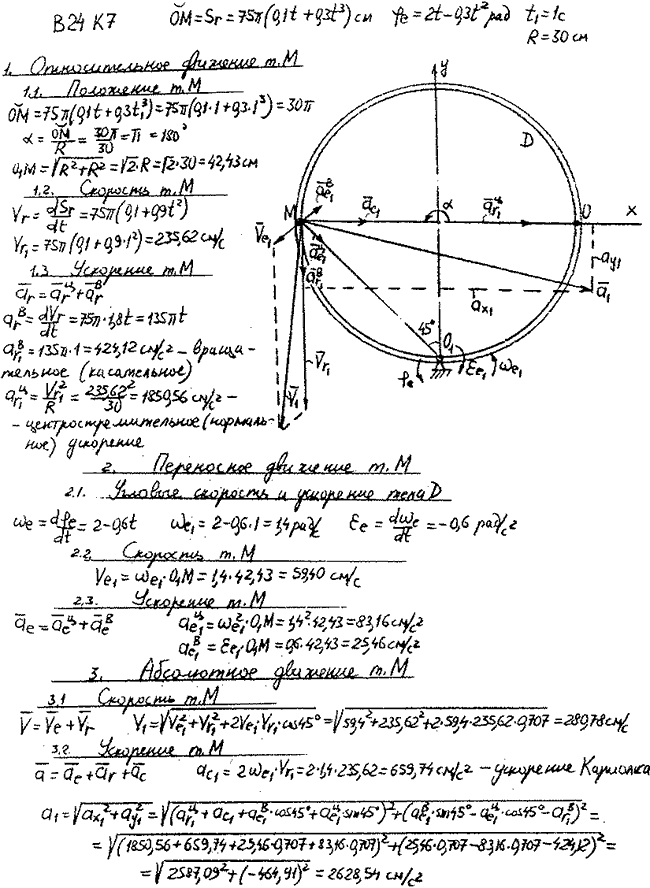 В24 К7 ŎM = Sr = 75π(0,1t + 0,3t³) см φe = 2t − 0,3t² рад t₁ = 1с
R = 30 см
1. Относительное движение т.М
1.1. Положение т.М
ŎM = 75π(0,1t + 0,3t₁³) = 75π(0,1·1 + 0,3·1³) = 30π
α = ŎM/R = 30π/30 = π = 180°
O₁M = √(R² + R²) = √2·R = √2·30 = 42,43 см
1.2. Скорость т.М
Vr = dSr/dt = 75π(0,1 + 0,9t²)
Vr₁ = 75π(0,1 + 0,9·1²) = 235,62 см/с
1.3. Ускорение т.М
ār = ārᶸ + ārᴮ
arᴮ = dVr/dt = 75π·1,8t = 135πt
ar₁ᴮ = 135π·1 = 424,12 см/с² – враща-
тельное (касательное)
ar₁ᶸ = Vr₁²/R = 235,62²/30 = 1850,56 см/с² –
- центростремительное (нормаль-
ное) ускорение
y
D
āe₁ᴮ
M āc₁ α ār₁ᶸ O x
V̄e₁
āe₁ᶸ
ār₁ᴮ
ay₁
ax₁ ā₁
45° O₁
V̄r₁ φe εe₁ ωe₁
V̄₁
2. Переносное движение т.М
2.1. Угловые скорость и ускорение тела D
ωe = dφe/dt = 2 − 0,6t ωe₁ = 2 − 0,6·1 = 1,4 рад/с εe = dωe/dt = −0,6 рад/с²
2.2. Скорость т.М
Ve₁ = ωe₁·O₁M = 1,4·42,43 = 59,40 см/с
2.3. Ускорение т.М
āe = āeᶸ + āeᴮ ae₁ᶸ = ωe₁²·O₁M = 1,4²·42,43 = 83,16 см/с²
ae₁ᴮ = εe₁·O₁M = 0,6·42,43 = 25,46 см/с²
3. Абсолютное движение т.М
3.1 Скорость т.М
V̄ = V̄e + V̄r V₁ = √(Ve₁² + Vr₁² + 2Ve₁·Vr₁·cos45°) = √(59,4² + 235,62² + 2·59,4·235,62·0,707) = 280,78 см/с
3.2. Ускорение т.М
ā = āe + ār + āc ac₁ = 2ωe₁·Vr₁ = 2·1,4·235,62 = 659,74 см/с² – ускорение Кариолиса
a₁ = √(ax₁² + ay₁²) = √((ar₁ᶸ + ac₁ + ae₁ᴮ·cos45° + ae₁ᶸ·sin45°)² + (ae₁ᴮ·sin45° − ae₁ᶸ·cos45° − ar₁ᴮ)²) =
= √((1850,56 + 659,74 + 25,46·0,707 + 83,16·0,707)² + (25,46·0,707 − 83,16·0,707 − 424,12)²) =
= √(2587,09² + (−464,91)²) = 2628,54 см/с²